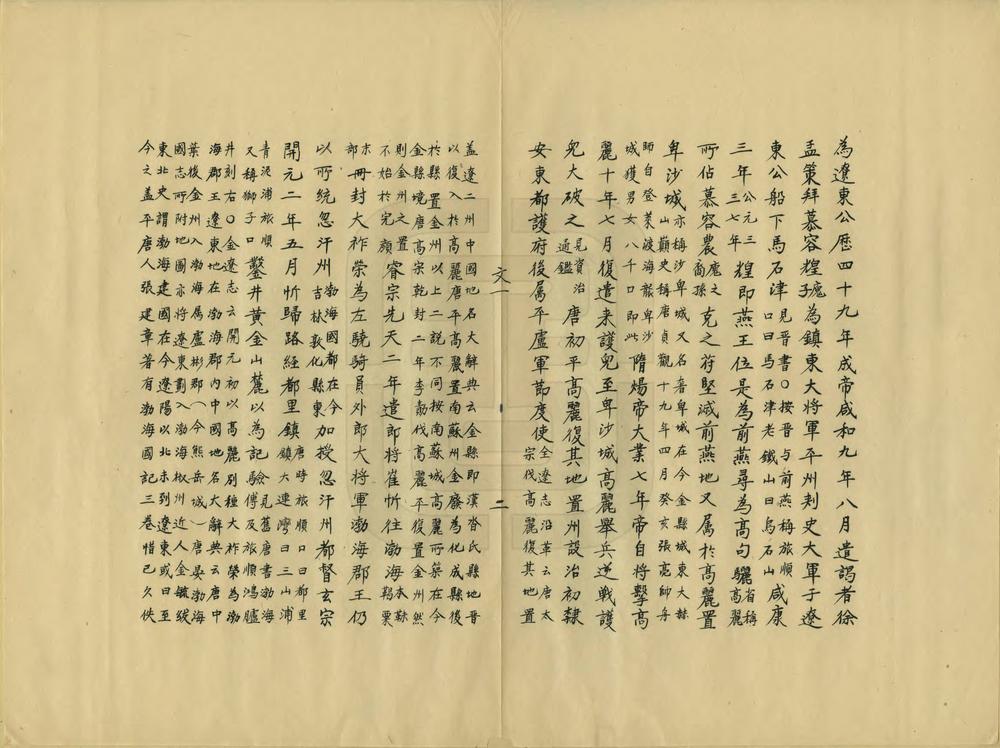 為遼東公歷四十九年成帝咸和九年八月遣謁者徐
孟策拜慕容皝廆子為鎮東大將軍平州刺史大單于遼
東公船下馬石津見晉書○按晋与前燕梅旅順口曰馬石津老鐵山曰烏石山咸康
三年公元三三七年皝即燕王位是為前燕尋為高句驪省稱高麗
所佔慕容農廆之裔孫克之苻堅滅前燕地又属於高麗置
卑沙城亦稱沙卑城又名奢卑城在今金縣城東大赫山巔史稱唐貞觀十九年四月癸亥張亮帥舟
師自登莱渡海襲卑沙城獲男女八千口即此隋煬帝大業七年帝自將擊高
麗十年七月復遣来護兒至卑沙城高麗舉兵逆戰護
兒大破之見資治通鑑唐初平高麗復其地置州設治初隸
安東都護府後属平盧軍節度使全遼志沿革云唐太宗伐高麗復其地置
文一 二
盖遼二州中國地名大辭典云金縣即漢沓氏縣地晋
以復入於高麗唐平高麗置南蘇州金廢為化成縣後
於縣置金州以上二說不同按南蘇城高麗所築在今
金縣境唐高宗乾封二年李勣伐高麗平復置金州然
則金州之置不始於完顔睿宗先天二年遣郎將崔忻往渤海本靺鞨粟
末部冊封大祚榮為左驍騎員外郎大將軍渤海郡王仍
以所統忽汗州渤海國都在今吉林敦化縣東加授忽汗州都督玄宗
開元二年五月忻歸路經都里鎮唐時旅順口曰都里鎮大連灣曰三山浦
青泥浦旅順又稱獅子口鑿井黃金山麓以為記驗見舊唐書渤海傳及旅順鴻臚
井刻右○金遼志云開元初以高麗别種大祚榮為渤
海郡王遼東地在渤海郡内中國地名大辭典云唐中
葉後金州入渤海属盧彬郡（今熊岳城）唐晏渤海
國志所附地圖亦將遼東劃入渤海椒州近人金毓紱
東北史謂渤海建國在今遼陽以北未到遼東或曰至
今之盖平唐人張建章著有渤海國記三卷惜已久佚